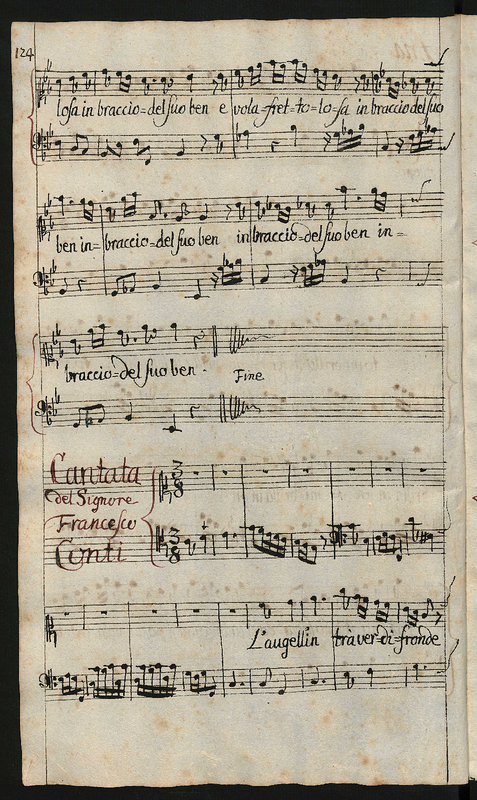 124
losa in braccio=del suo ben e vola fret=to=lo=sa in braccio del suo
ben in=braccio=del suo ben in braccio=del suo ben in=
braccio=del suo ben.
Fine
Cantata
del Signore
Francesco
Conti
3/8
3/8
L'augellin tra ver=di=fronde